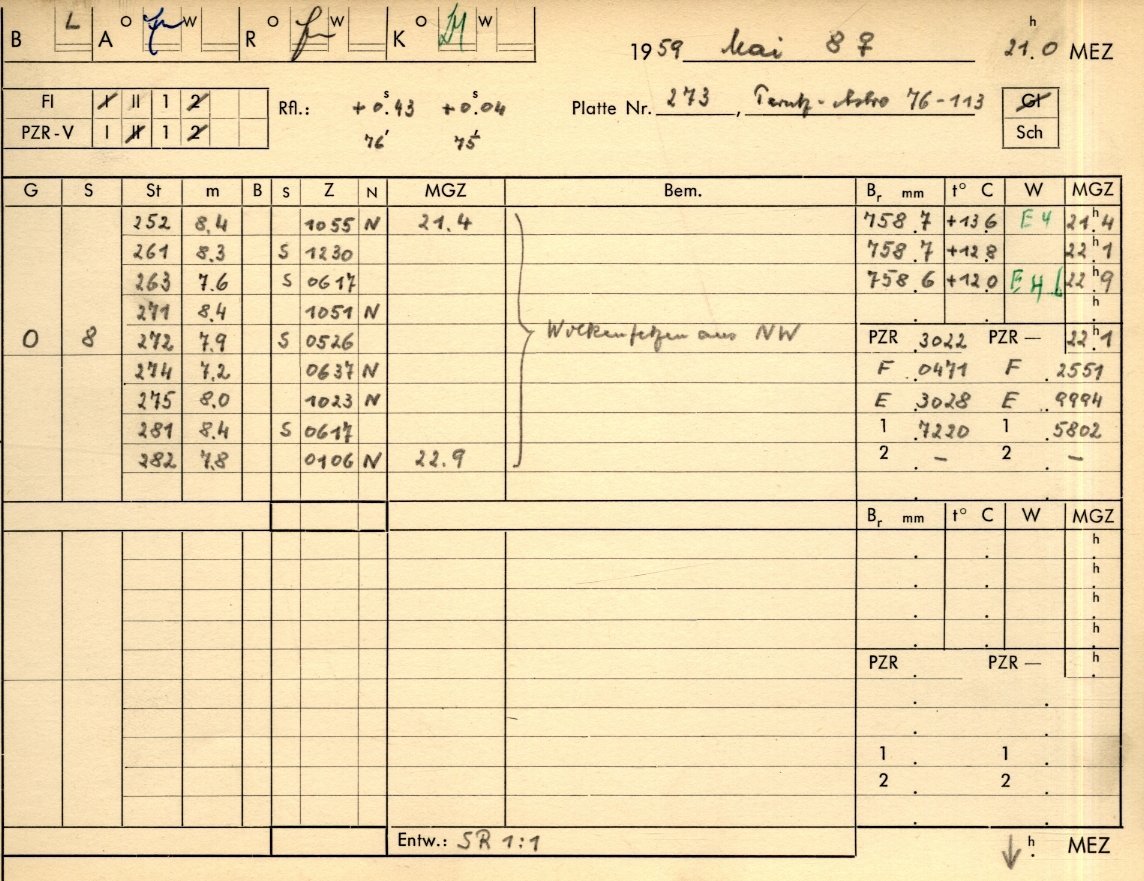 B L A O W R O W K O W
1959 Mai 8 ♀ 21h.0 MEZ
FI I II 1 2 Rfl.: +0s.43 +0s.04 Platte Nr. 273, Perutz-Astro 76-113 Gl
PZR-V I II 1 2 76' 75' Sch
G S St m B S Z N MGZ Bem. Br mm t° C W MGZ
252 8.4 1055 N 21.4 758.7 +13.6 E 4 21h.4
261 8.3 S 1230 758.7 +12.8 22h.1
263 7.6 S 0617 758.6 +12.0 22h.9
271 8.4 1051 N h
0 8 272 7.9 S 0526 Wolkenfetzen aus NW PZR .3022 PZR — 22h.1
274 7.2 0637 N F .0471 F .2551
275 8.0 1023 N E .3028 E .9994
281 8.4 S 0617 1 .7220 1 .5802
282 7.8 0106 N 22.9 2 — 2 —
Br mm t° C W MGZ
h
h
h
h
PZR PZR — h
1 1
2 2
Entw.: SR 1:1 h MEZ